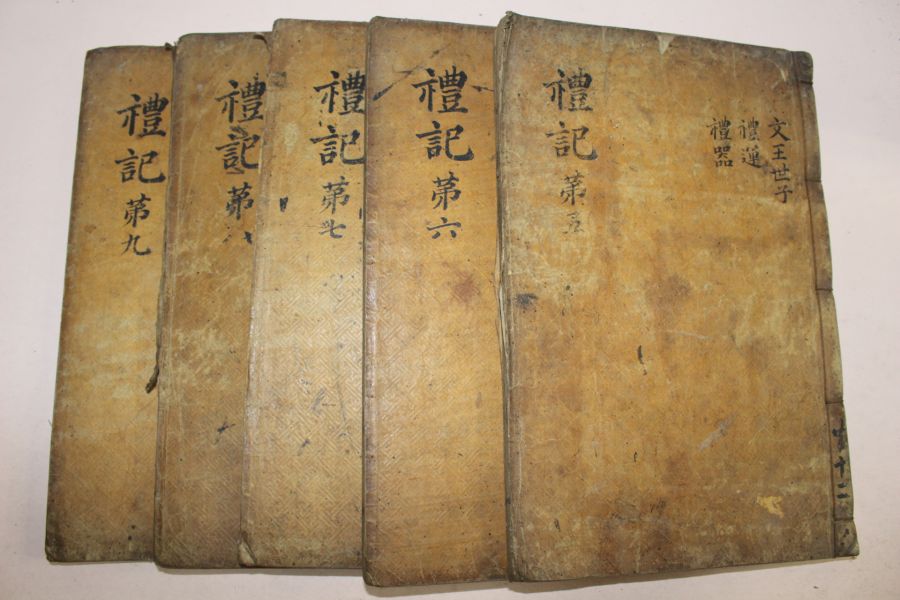 共十二
文王世子
禮運
禮器
禮記 第五
禮記 第六
禮記 第七
禮記 第八
禮記 第九